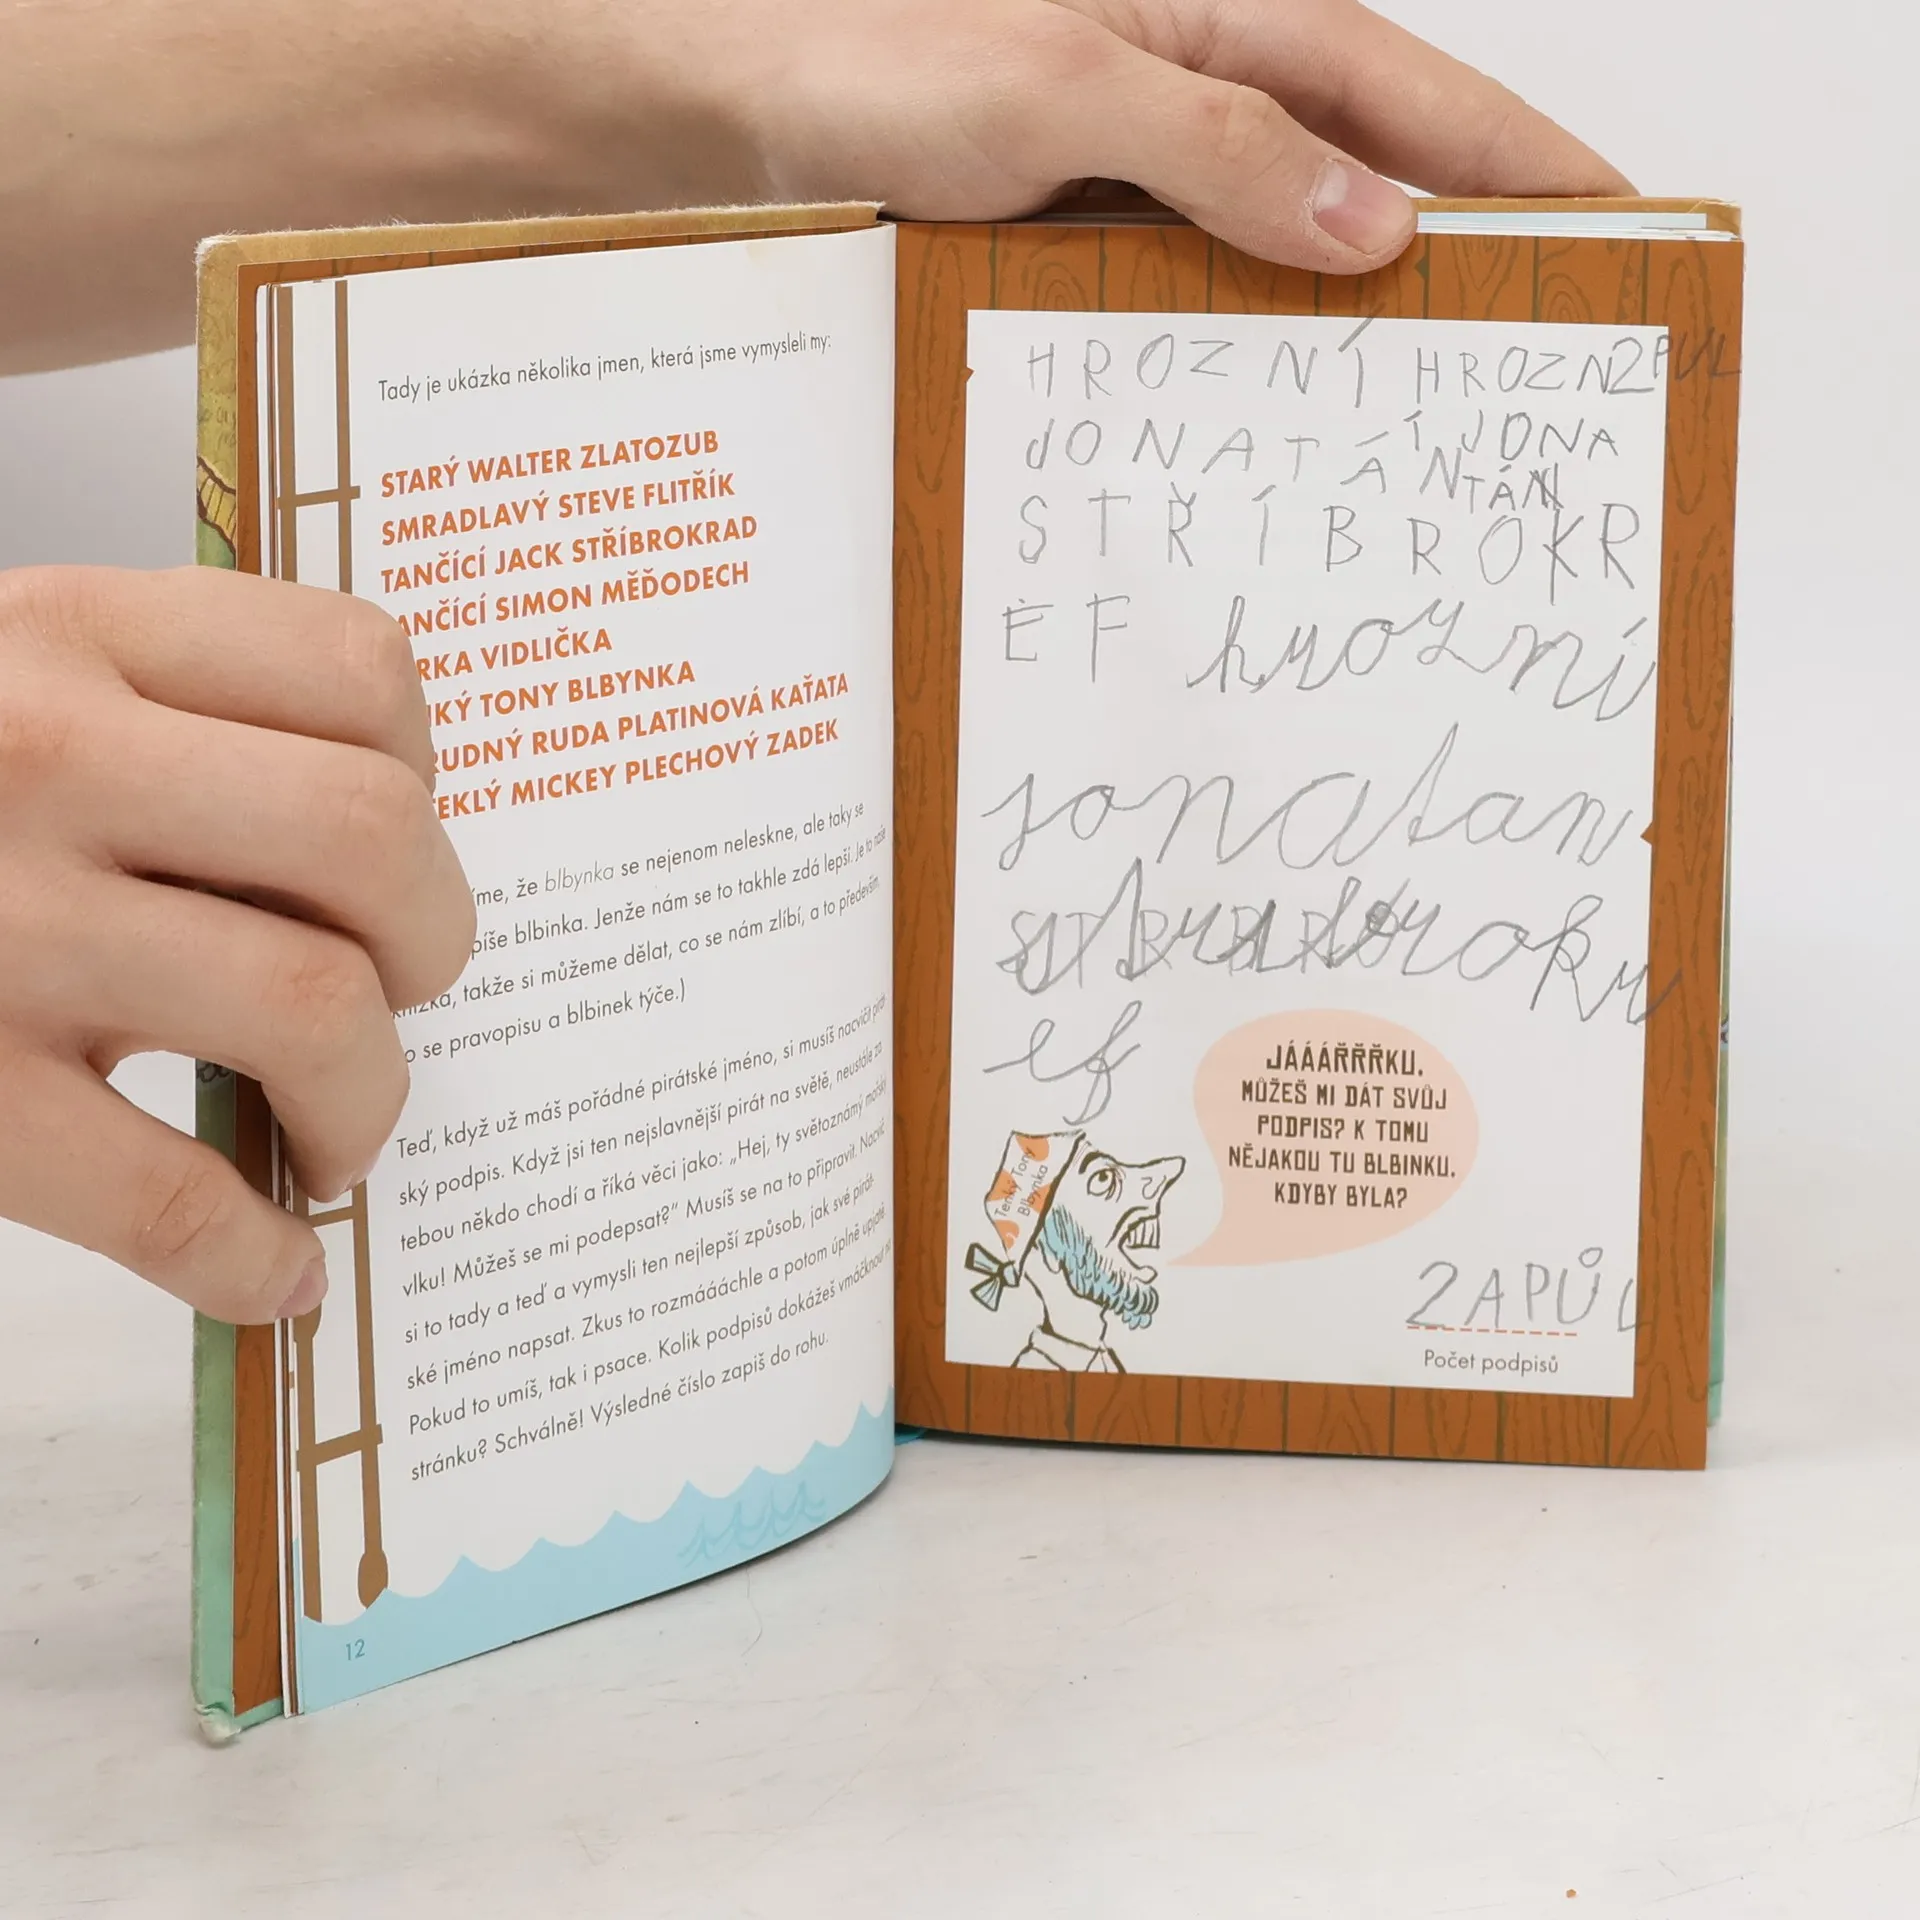 Tady je ukázka několika jmen, která jsme vymysleli my:
STARÝ WALTER ZLATOZUB
SMRADLAVÝ STEVE FLITŘÍK
TANČÍCÍ JACK STŘÍBROKRAD
ANČÍCÍ SIMON MĚĎODECH
RKA VIDLIČKA
KÝ TONY BLBYNKA
RUDNÝ RUDA PLATINOVÁ KAŤATA
EKLÝ MICKEY PLECHOVÝ ZADEK
íme, že blbynka se nejenom neleskne, ale taky se
píše blbinka. Jenže nám se to takhle zdá lepší. Je to naše
knížka, takže si můžeme dělat, co se nám zlíbí, a to především
o se pravopisu a blbinek týče.)
Teď, když už máš pořádné pirátské jméno, si musíš nacvičit pirát-
ský podpis. Když jsi ten nejslavnější pirát na světě, neustále za
tebou někdo chodí a říká věci jako: „Hej, ty světoznámý mořský
vlku! Můžeš se mi podepsat?“ Musíš se na to připravit. Nacvič
si to tady a teď a vymysli ten nejlepší způsob, jak své pirát-
ské jméno napsat. Zkus to rozmáááchle a potom úplně upjatě.
Pokud to umíš, tak i psace. Kolik podpisů dokážeš vmáčknout na
stránku? Schválně! Výsledné číslo zapiš do rohu.
12
HROZNÍ HROZN 2 PUL
JONATÁN Í JONA
TÁN
STŘÍBROKR
EF hrozní
jonatan
ef
JÁÁÁŘŘŘKU.
MŮŽEŠ MI DÁT SVŮJ
PODPIS? K TOMU
NĚJAKOU TU BLBINKU.
KDYBY BYLA?
Tenký Tony
Blbynka
2 A PŮL
Počet podpisů